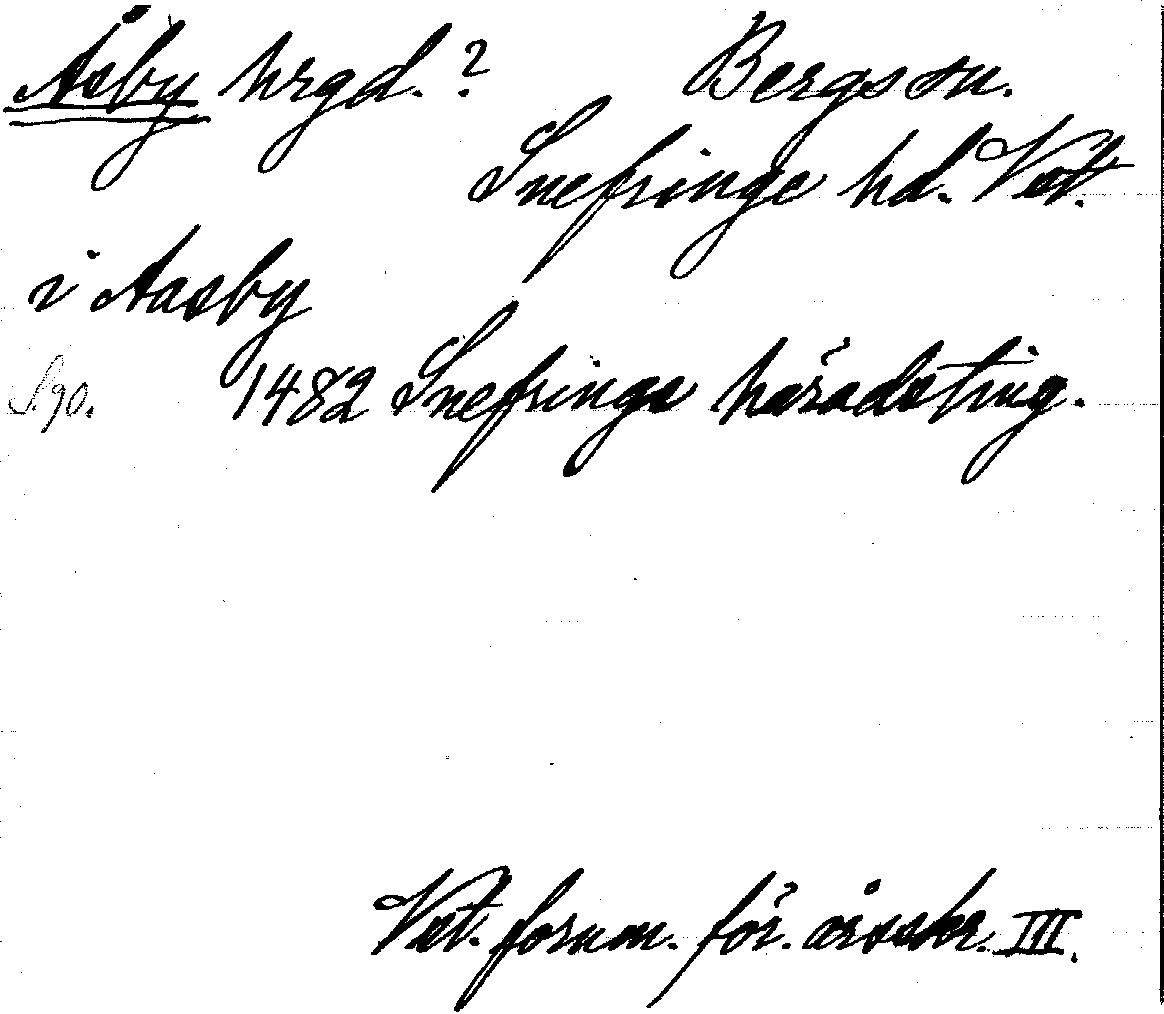 Åsby hrgd.? Bergs sn.
Snefringe hd. Vstt.
i Aasby
1482 Snefringe häradsting.
Vst. fornm. för. årsskr. III.